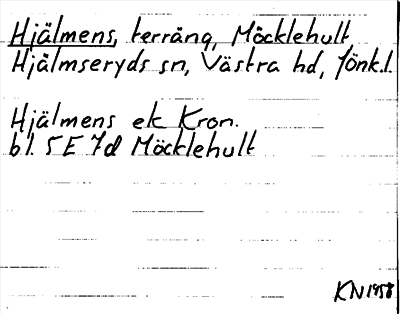 Hjälmens, terräng, Möcklehult
Hjälmseryds sn, Västra hd, Jönk.l.
Hjälmens ek Kron.
bl. 5E 7d Möcklehult
KN 1958